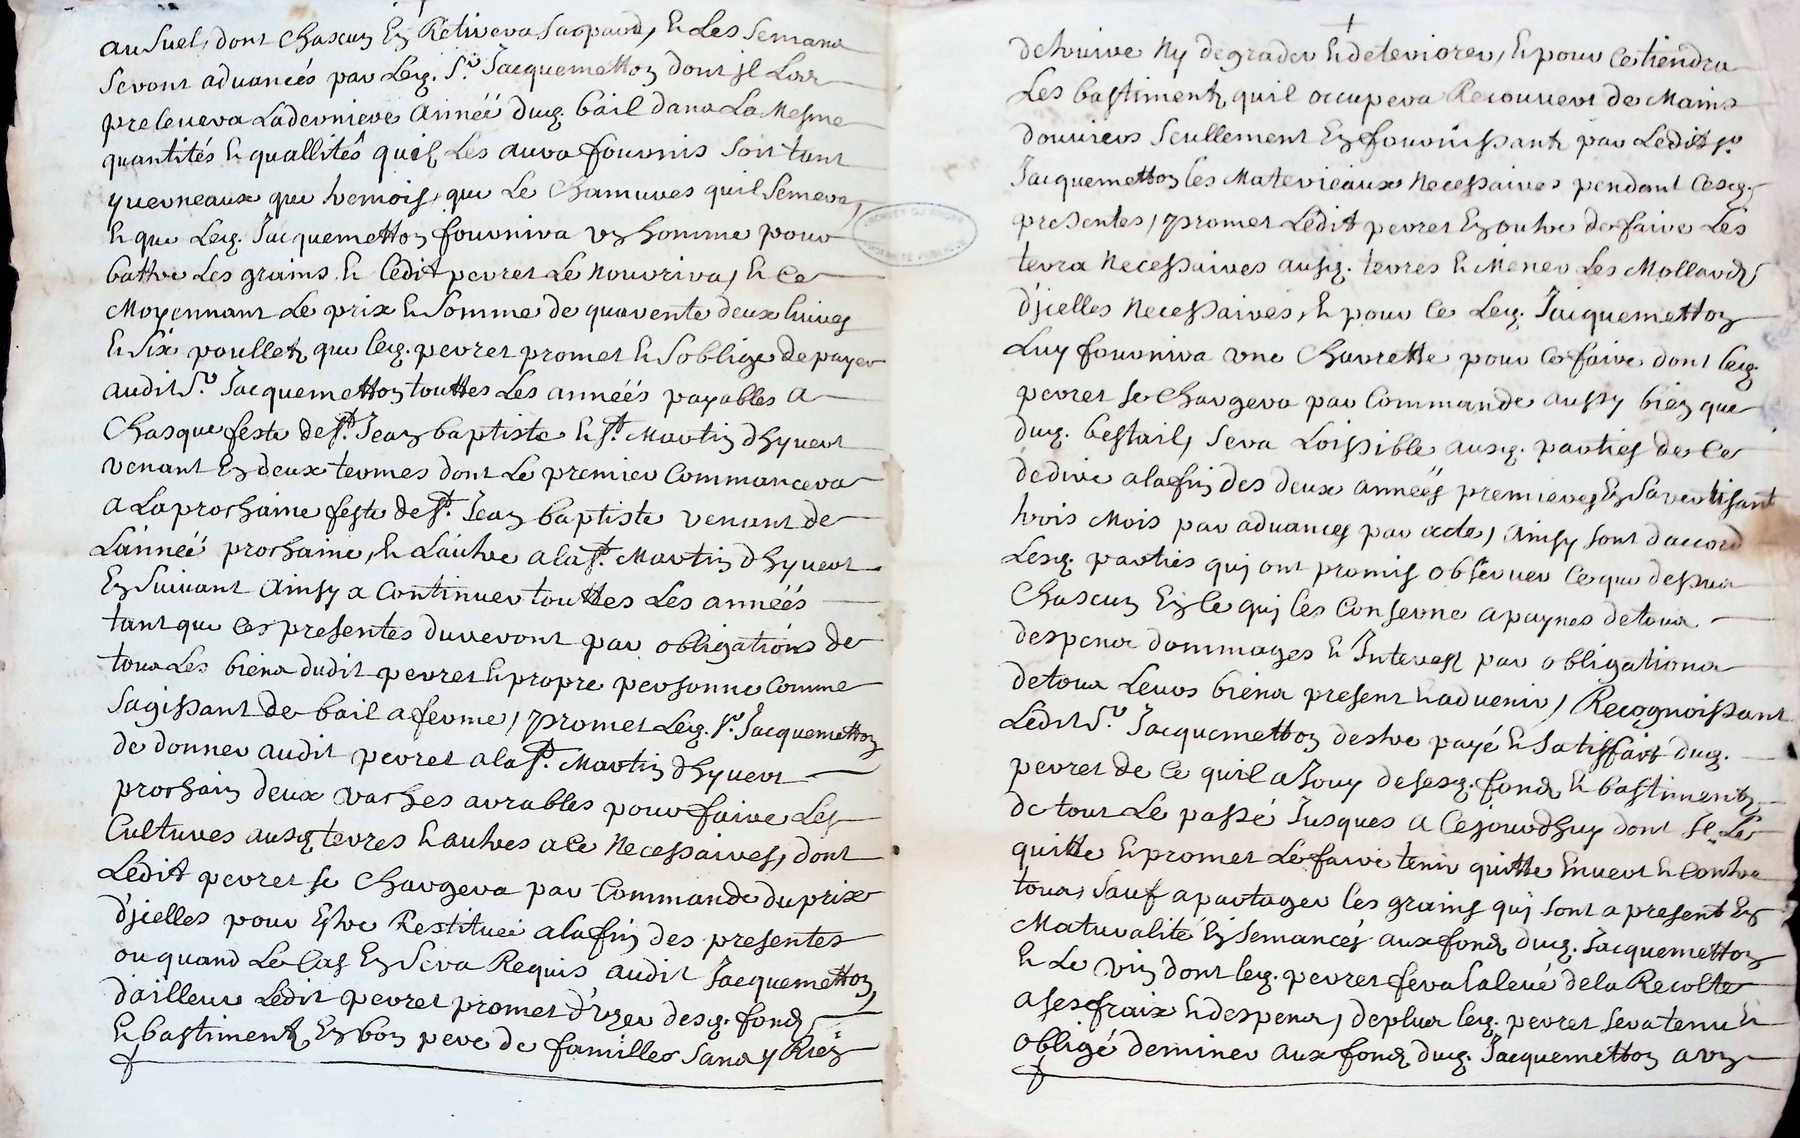 au suel, dont chascun en Retirera sa part, et Les semans
seront aduancés par Led. Sr. Jacquemetton dont jl Lors
preleuera La derniere Année dud. bail dans La Mesme
quantités et quallités qu'il Les aura fournis soit tant
yuerneaux que tremois, que Le Chanuures quil semera,
et que Led. Jacquemetton fournira vn homme pour
battre Les grains et ledit perret Le Nourrira, et ce
Moyennant Le prix et Somme de quarente deux liures
et six poulletz que led. perret promet et soblige de payer
audit Sr. Jacquemetton touttes Les années payables a
Chasque feste de St. Jean baptiste et St. Martin dhyuert
venant En deux termes dont Le premier Commancera
a La prochaine feste de St. Jean baptiste venant de
L'année prochaine, et L'autre a la St. Martin dhyuert
En suiuant Ainsy a Continuer touttes Les années
tant que ces presentes dureront par obligations de
tous Les biens dudit perret et propre personne Comme
sagissant de bail a ferme, promet Led. Sr. Jacquemetton
de donner audit perret a la St. Martin dhyuert
prochain deux vaches arrables pour faire Les
Cultures ausd. terres et autres a ce Necessaires, dont
Ledit perret se chargera par Commande du prix
d'jcelles pour Estre Restitué a la fin des presentes
ou quand Le Cas En sera Requis audit Jacquemetton,
d'ailleurs Ledit perret promet d'vzer desd. fondz
et bastimentz En bon pere de familles sans y Rien
detruire Ny degrader et deteriorer, et pour ce tiendra
Les bastimentz quil occupera Recouuert de Mains
douuriers seullement En fournissantz par Ledit Sr.
Jacquemetton les Materieaux Necessaires pendant Cesd.
presentes, promet Ledit perret En outre de faire Les
terra Necessaires ausd. terres et Mener Les Mollardz
d'jcelles Necessaires, et pour ce Led. Jacquemetton
Luy fournira vne Charrette pour ce faire dont led.
perret se Chargera par Commande aussy bien que
dud. bestail, sera Loissible ausd. parties de ce
dedire a la fin des deux années premieres En sauertisant
trois Mois par aduances par acte, Ainsy sont daccord
Lesd. parties quj ont promis obseruer ce que dessus
Chascun En ce quj les Conserne a paynes de tous
despens dommages et Interestz par obligations
de tous Leurs biens present et aduenir, Recognoissant
Ledit Sr. Jacquemetton destre payé et satisfait dud.
perret de ce quil a Jouy de sesd. fondz et bastimentz
de tout Le passé Jusques a Ce jourdhuy dont jl Le
quitte et promet Le faire tenir quitte Enuert et Contre
tous, sauf a partager les grains quj sont a present En
Maturalité Ensemancés aux fondz dud. Jacquemetton
et Le vin dont led. perret fera la leué de la Recolte
a ses fraix et despens, de plus led. perret sera tenu et
obligé de miner aux fondz dud. Jacquemetton a vn